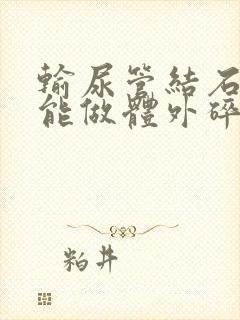 輸尿管結石
能做體外碎
粕井